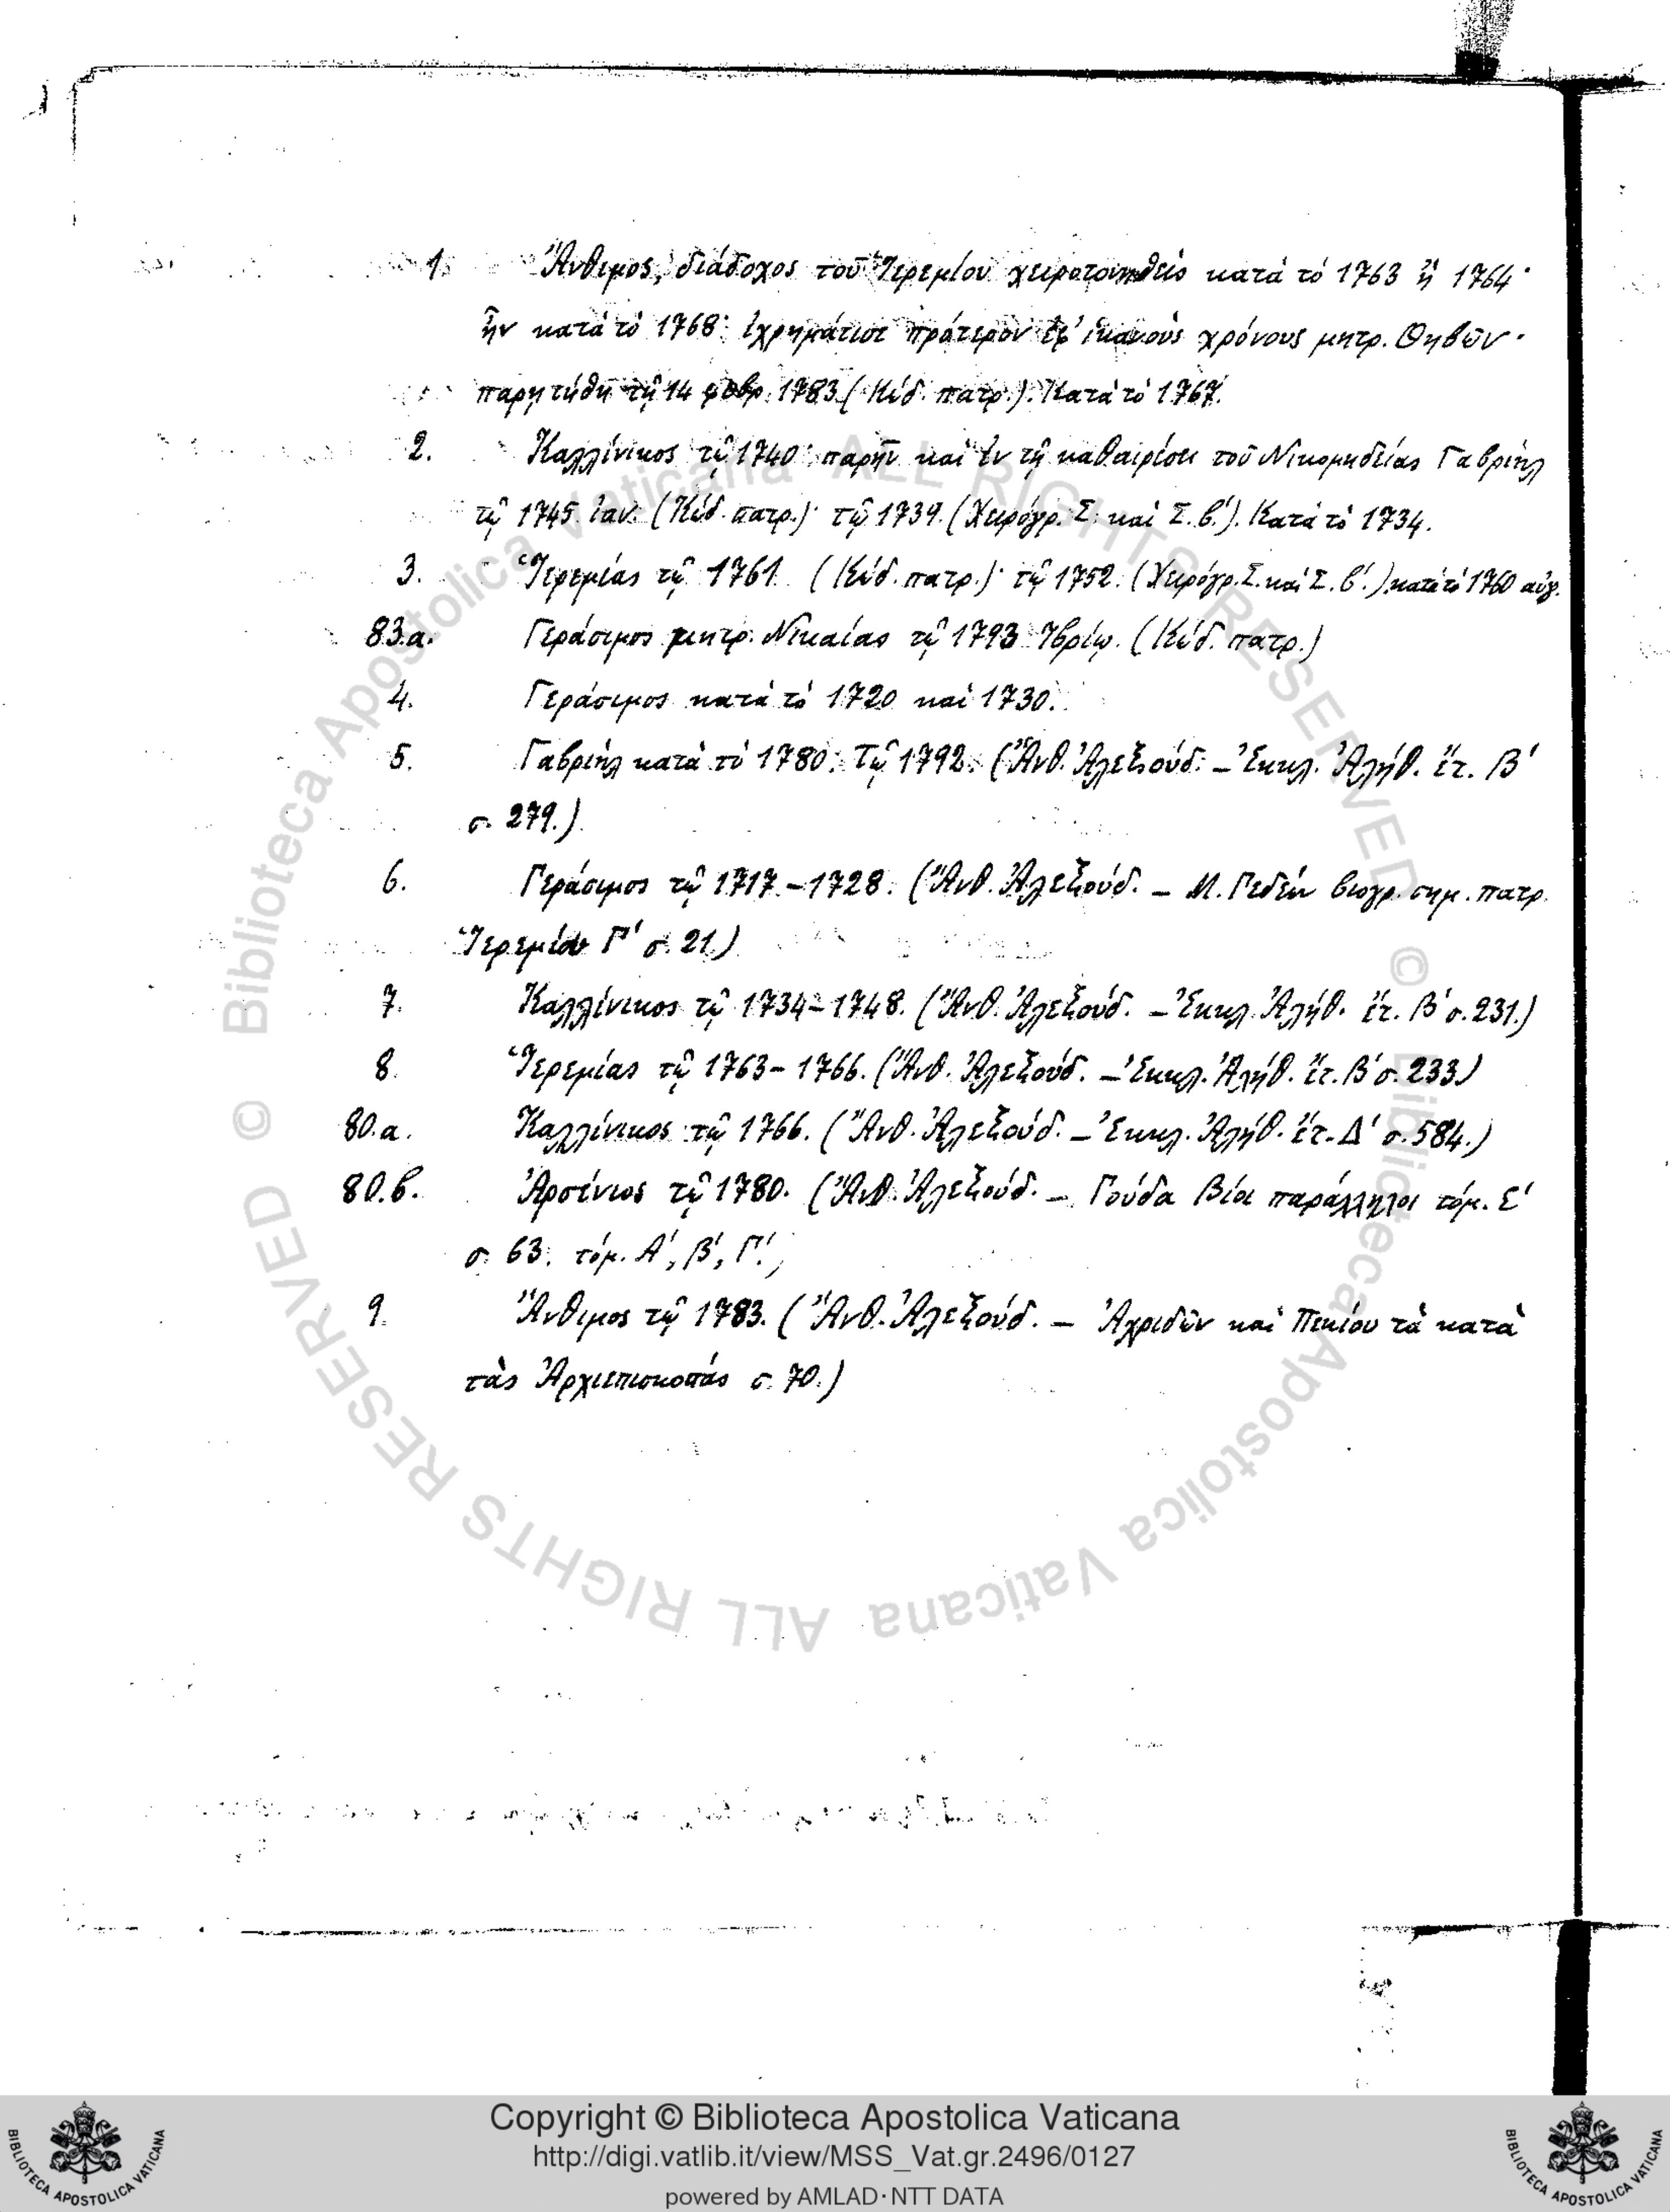 1. Ἄνθιμος, διάδοχος τοῦ Ἱερεμίου χειροτονηθείς κατά τό 1763 ἤ 1764·
ἦν κατά τό 1768· ἐχρημάτισε πρότερον ἐφ' ἱκανούς χρόνους μητρ. Θηβῶν·
παρητήθη τῇ 14 φεβρ. 1783 (Κώδ. πατρ.). Κατά τό 1767.
2. Καλλίνικος τῷ 1740· παρῆν καί ἐν τῇ καθαιρέσει τοῦ Νικομηδείας Γαβριήλ
τῷ 1745 ἰαν. (Κώδ. πατρ.)· τῷ 1739. (Χειρόγρ. Σ. καί Σ. β'.). Κατά τό 1734.
3. Ἱερεμίας τῷ 1761. (Κώδ. πατρ.)· τῷ 1752. (Χειρόγρ. Σ. καί Σ. β'.) κατά τό 1760 αὐγ.
83.α. Γεράσιμος μητρ. Νικαίας τῷ 1793 Ἰβρίῳ. (Κώδ. πατρ.)
4. Γεράσιμος κατά τό 1720 καί 1730.
5. Γαβριήλ κατά τό 1780. Τῷ 1792. (Ἄνθ. Ἀλεξούδ. – Ἐκκλ. Ἀλήθ. ἔτ. Β'
σ. 279.)
6. Γεράσιμος τῷ 1717–1728. (Ἄνθ. Ἀλεξούδ. – Μ. Γεδεών βιογρ. σημ. πατρ.
Ἱερεμίου Γ' σ. 21.)
7. Καλλίνικος τῷ 1734–1748. (Ἄνθ. Ἀλεξούδ. – Ἐκκλ. Ἀλήθ. ἔτ. Β' σ. 231.)
8. Ἱερεμίας τῷ 1763–1766. (Ἄνθ. Ἀλεξούδ. – Ἐκκλ. Ἀλήθ. ἔτ. Β' σ. 233.)
80.α. Καλλίνικος τῷ 1766. (Ἄνθ. Ἀλεξούδ. – Ἐκκλ. Ἀλήθ. ἔτ. Δ' σ. 584.)
80.β. Ἀρσένιος τῷ 1780. (Ἄνθ. Ἀλεξούδ. – Γούδα Βίοι παράλληλοι τόμ. Σ'
σ. 63. τόμ. Α', Β', Γ'.)
9. Ἄνθιμος τῷ 1783. (Ἄνθ. Ἀλεξούδ. – Ἀχριδῶν καί Πεκίου τὰ κατὰ
τὰς Ἀρχιεπισκοπάς σ. 70.)
© Biblioteca Apostolica Vaticana ALL RIGHTS RESERVED
© Biblioteca Apostolica Vaticana ALL RIGHTS RESERVED
Copyright © Biblioteca Apostolica Vaticana
http://digi.vatlib.it/view/MSS_Vat.gr.2496/0127
powered by AMLAD·NTT DATA
BIBLIOTECA APOSTOLICA VATICANA
BIBLIOTECA APOSTOLICA VATICANA